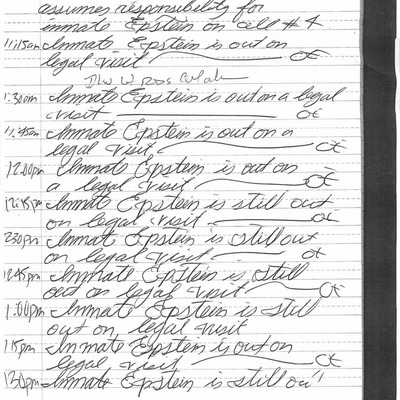 assumes responsibility for
inmate Epstein on cell #4
11:15am Inmate Epstein is out on
legal visit OE
1:30am Inmate Epstein is out on a legal
visit OE
11:45am Inmate Epstein is out on a
legal visit OE
12:00pm Inmate Epstein is out on
a legal visit OE
12:15pm Inmate Epstein is still out
on legal visit OE
230pm Inmat Epstein is still out
on legal visit OE
12:45pm Inmate Epstein is still
out on legal visit OE
1:00pm Inmate Epstein is still
out on legal visit
115pm Inmate Epstein is out on
legal visit OE
130pm Inmate Epstein is still out